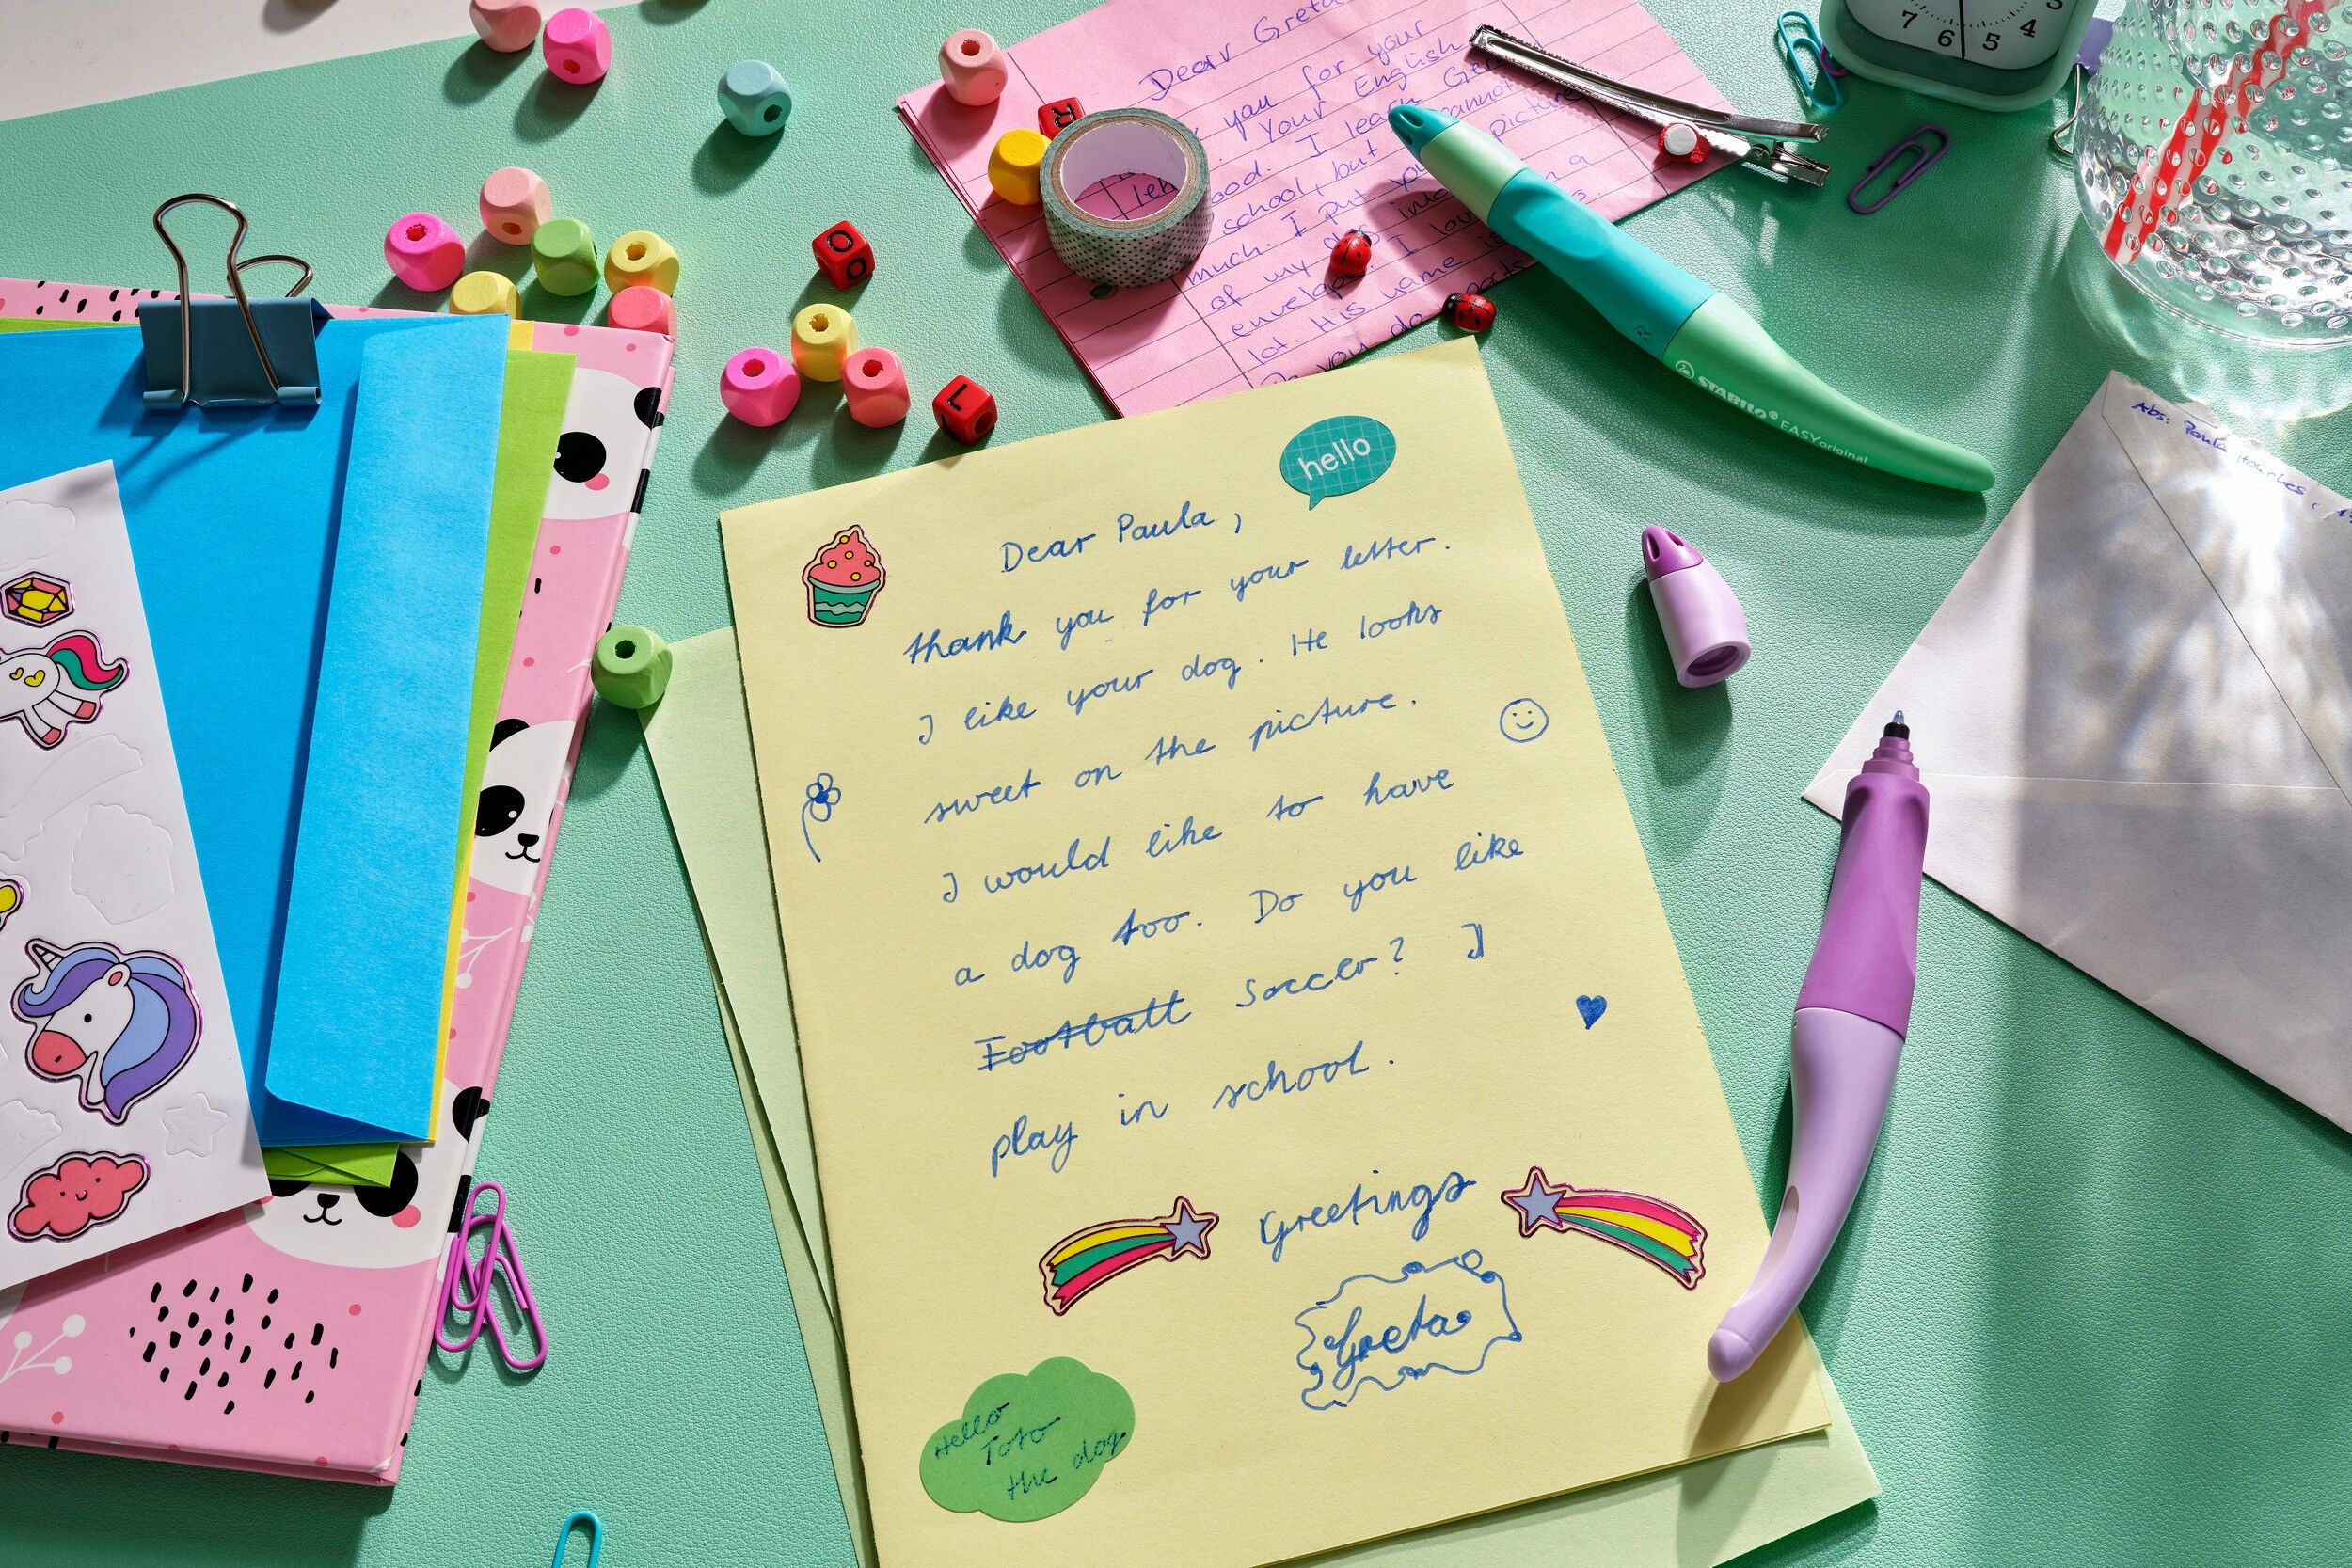 7 6 5 4
Dear Greta
you for your
Your English
ood. I lea Ge
school, but cannot
much. I put you picture
of my dog into a
envelop I lov
lot. His name is
you do
R
O
O
L
STABILO® EASYoriginal
R
Abs: Paula
hello
Dear Paula,
thank you for your letter.
I like your dog. He looks
sweet on the picture.
I would like to have
a dog too. Do you like
Football Soccer? I
play in school.
Greetings
Greta
Hello
Toto
the dog